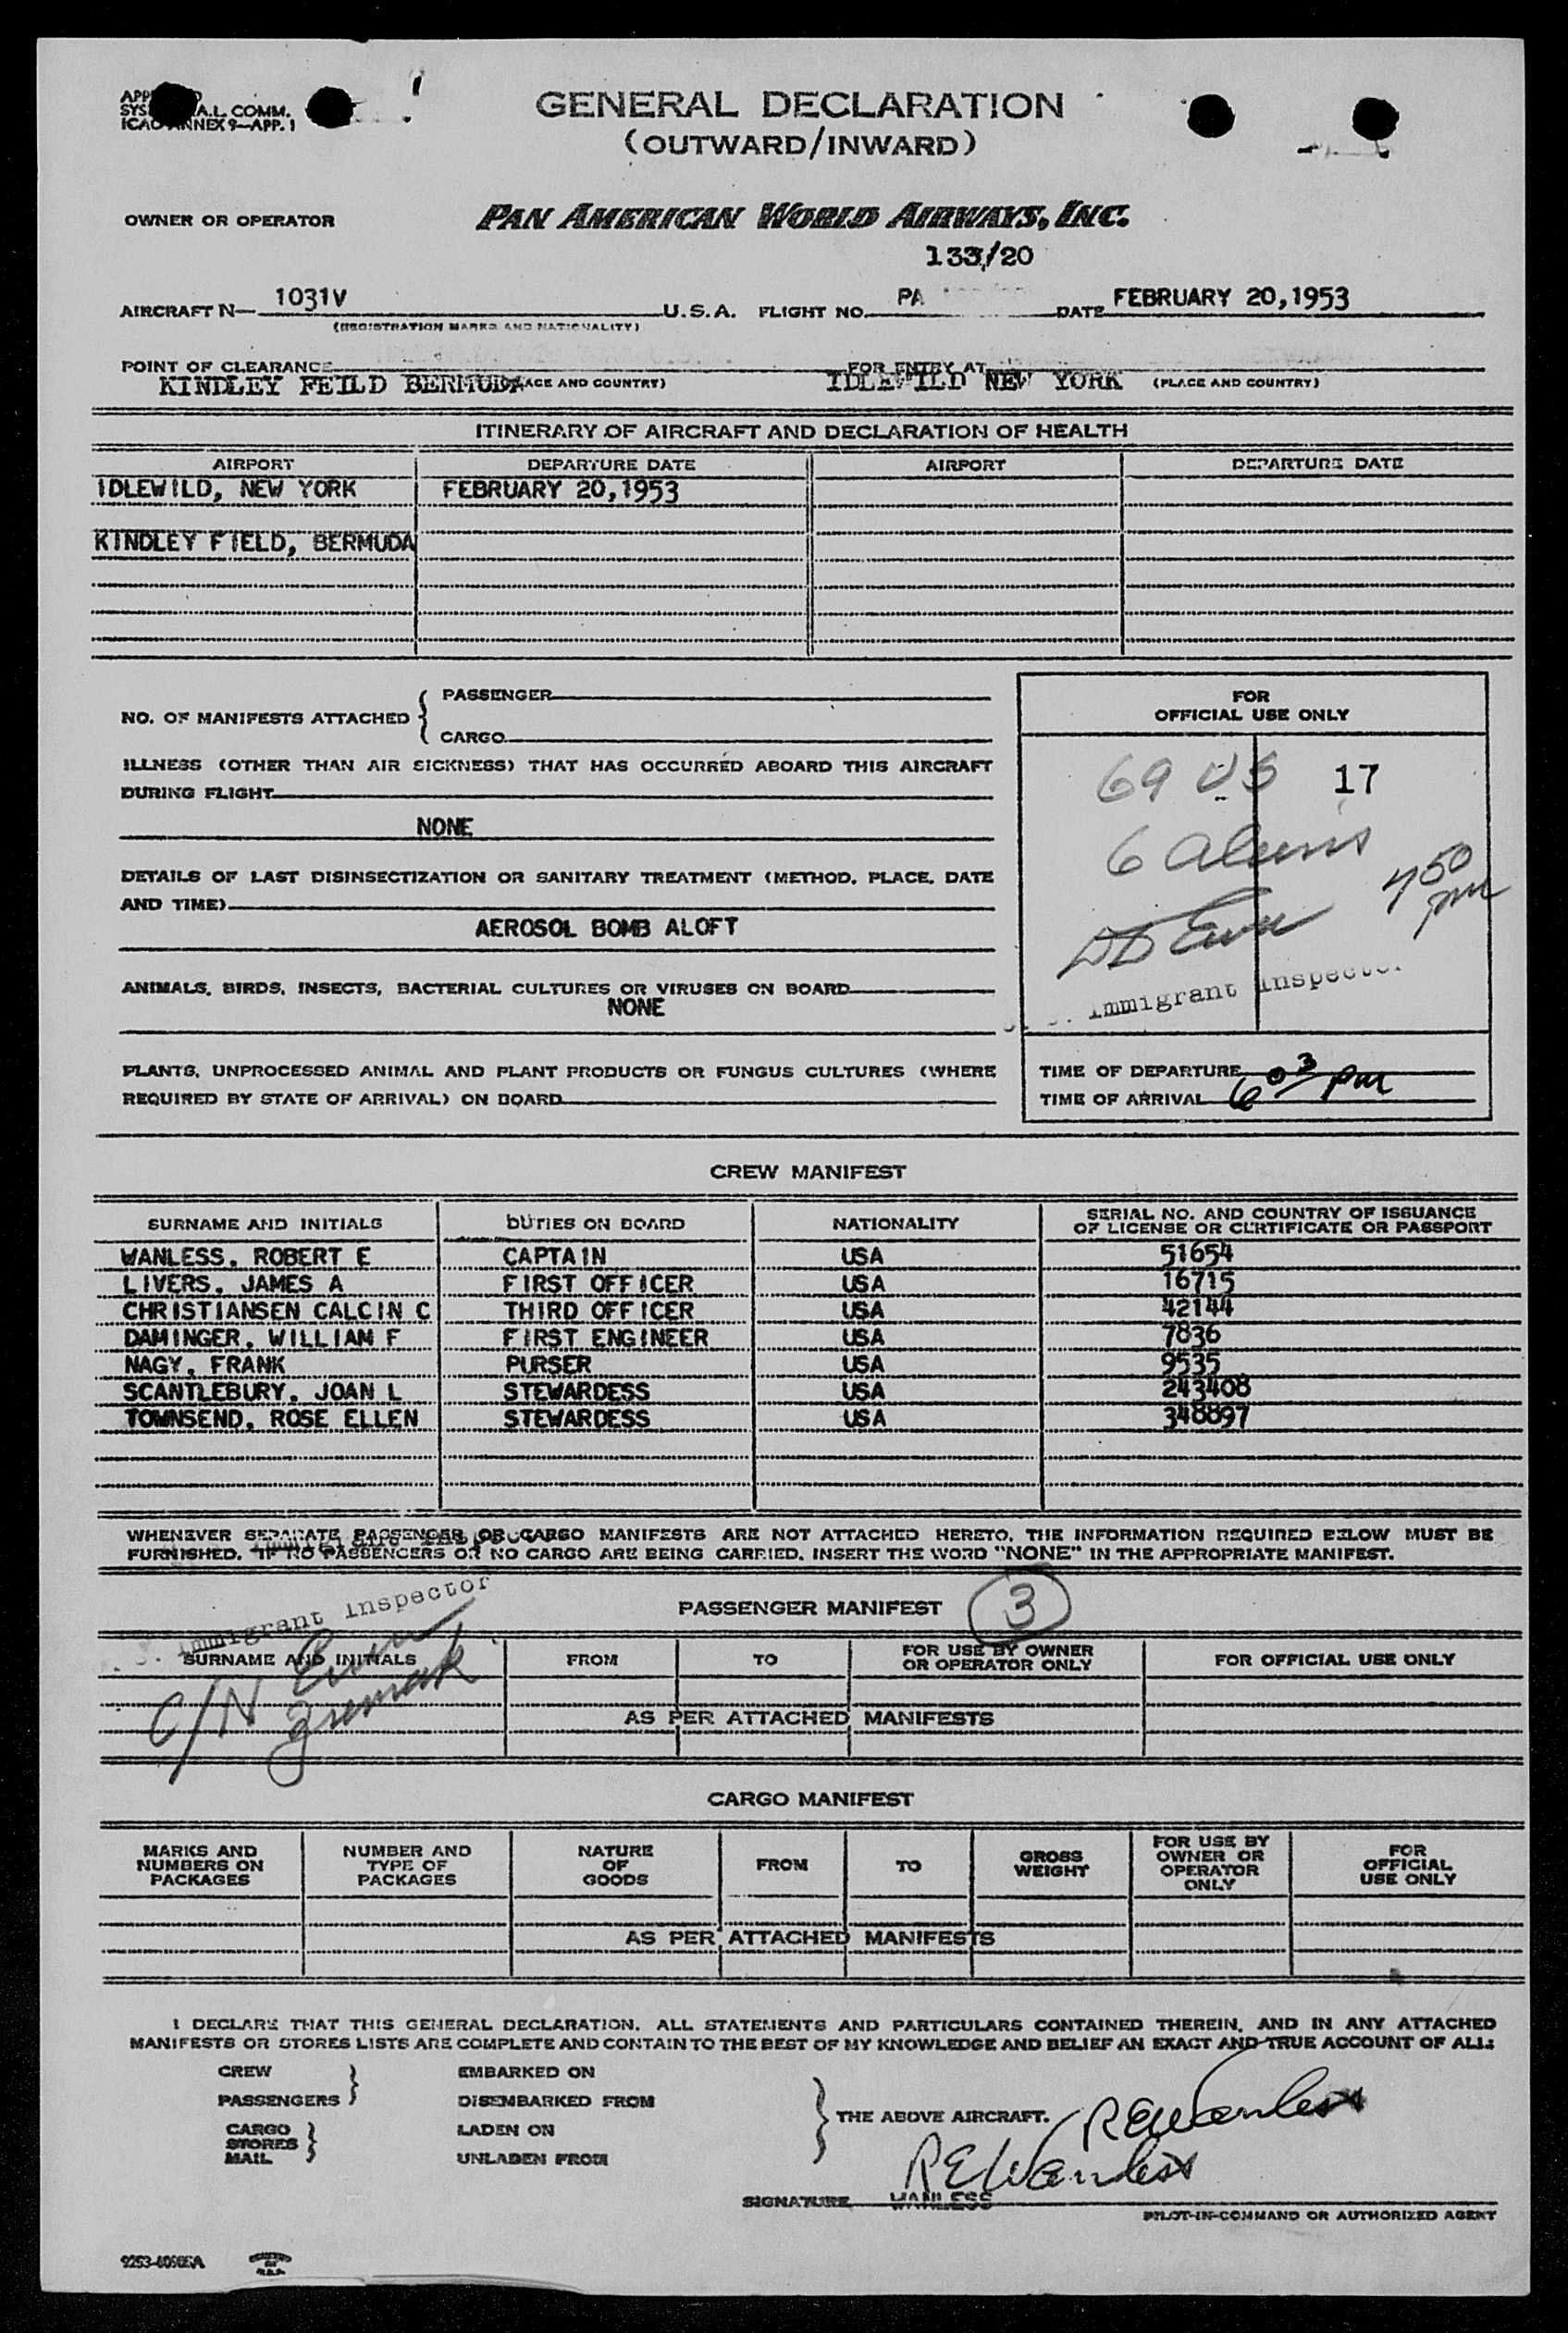 GENERAL DECLARATION
(OUTWARD/INWARD)
A.L. COMM.
ICAO ANNEX 9—APP. 1
OWNER OR OPERATOR PAN AMERICAN WORLD AIRWAYS, INC.
133/20
AIRCRAFT N— 1031V U.S.A. FLIGHT NO. PA DATE FEBRUARY 20,1953
(REGISTRATION MARKS AND NATIONALITY)
POINT OF CLEARANCE FOR ENTRY AT
KINDLEY FEILD BERMUDA ACE AND COUNTRY) IDLEWILD NEW YORK (PLACE AND COUNTRY)
ITINERARY OF AIRCRAFT AND DECLARATION OF HEALTH
AIRPORT DEPARTURE DATE AIRPORT DEPARTURE DATE
IDLEWILD, NEW YORK FEBRUARY 20,1953
KINDLEY FIELD, BERMUDA
NO. OF MANIFESTS ATTACHED { PASSENGER
CARGO
ILLNESS (OTHER THAN AIR SICKNESS) THAT HAS OCCURRED ABOARD THIS AIRCRAFT
DURING FLIGHT
NONE
DETAILS OF LAST DISINSECTIZATION OR SANITARY TREATMENT (METHOD, PLACE, DATE
AND TIME)
AEROSOL BOMB ALOFT
ANIMALS, BIRDS, INSECTS, BACTERIAL CULTURES OR VIRUSES ON BOARD
NONE
PLANTS, UNPROCESSED ANIMAL AND PLANT PRODUCTS OR FUNGUS CULTURES (WHERE
REQUIRED BY STATE OF ARRIVAL) ON BOARD
FOR
OFFICIAL USE ONLY
69 US 17
6 Aliens
450 pm
Immigrant Inspector
TIME OF DEPARTURE
TIME OF ARRIVAL 603 pm
CREW MANIFEST
SURNAME AND INITIALS DUTIES ON BOARD NATIONALITY SERIAL NO. AND COUNTRY OF ISSUANCE
OF LICENSE OR CERTIFICATE OR PASSPORT
WANLESS, ROBERT E CAPTAIN USA 51654
LIVERS, JAMES A FIRST OFFICER USA 16715
CHRISTIANSEN CALCIN C THIRD OFFICER USA 42144
DAMINGER, WILLIAM F FIRST ENGINEER USA 7836
NAGY, FRANK PURSER USA 9535
SCANTLEBURY, JOAN L STEWARDESS USA 243408
TOWNSEND, ROSE ELLEN STEWARDESS USA 348897
WHENEVER SEPARATE PASSENGER OR CARGO MANIFESTS ARE NOT ATTACHED HERETO, THE INFORMATION REQUIRED BELOW MUST BE
FURNISHED. IF NO PASSENGERS OR NO CARGO ARE BEING CARRIED, INSERT THE WORD "NONE" IN THE APPROPRIATE MANIFEST.
Immigrant Inspector
PASSENGER MANIFEST 3
SURNAME AND INITIALS FROM TO FOR USE BY OWNER
OR OPERATOR ONLY FOR OFFICIAL USE ONLY
C/N
AS PER ATTACHED MANIFESTS
CARGO MANIFEST
MARKS AND
NUMBERS ON
PACKAGES
NUMBER AND
TYPE OF
PACKAGES
NATURE
OF
GOODS
FROM
TO
GROSS
WEIGHT
FOR USE BY
OWNER OR
OPERATOR
ONLY
FOR
OFFICIAL
USE ONLY
AS PER ATTACHED MANIFESTS
I DECLARE THAT THIS GENERAL DECLARATION, ALL STATEMENTS AND PARTICULARS CONTAINED THEREIN, AND IN ANY ATTACHED
MANIFESTS OR STORES LISTS ARE COMPLETE AND CONTAIN TO THE BEST OF MY KNOWLEDGE AND BELIEF AN EXACT AND TRUE ACCOUNT OF ALL:
CREW EMBARKED ON
PASSENGERS DISEMBARKED FROM
THE ABOVE AIRCRAFT. REWanless
CARGO LADEN ON
STORES
MAIL UNLADEN FROM
REWanless
SIGNATURE WANLESS
PILOT-IN-COMMAND OR AUTHORIZED AGENT